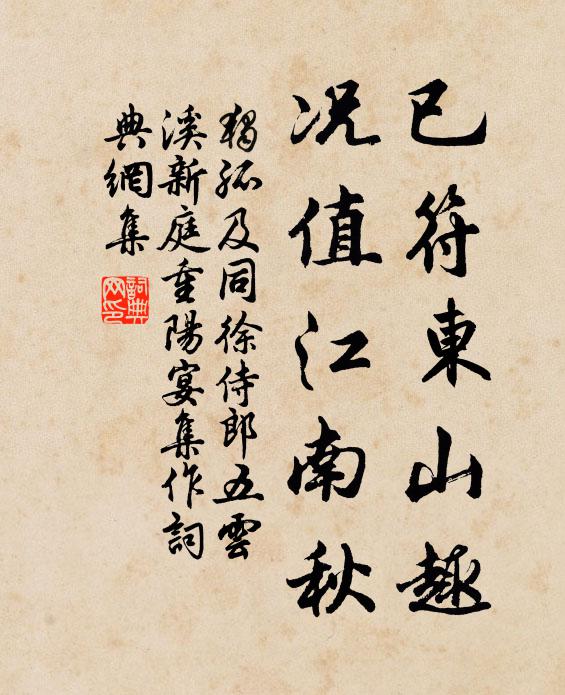 已符東山趣
况值江南秋
獨孤及同徐侍郎五雲
溪新庭重陽宴集作詞
典網集
詞典網印